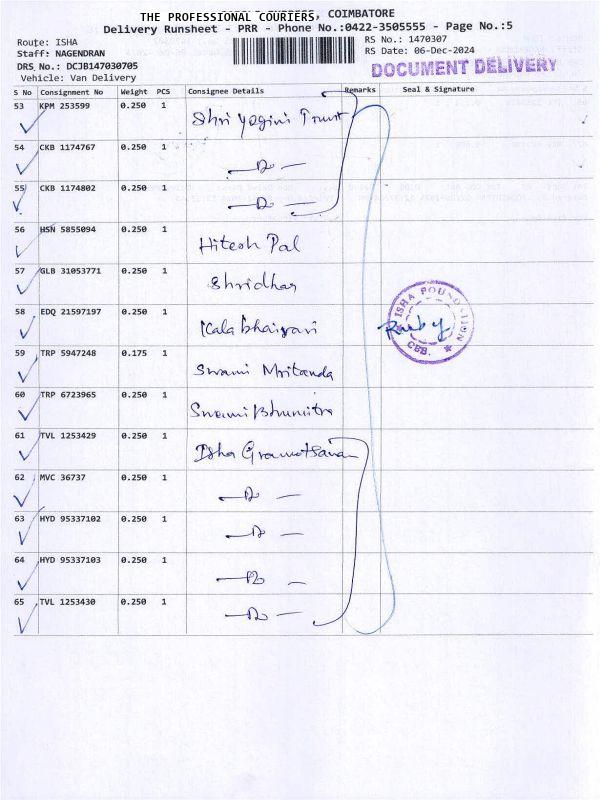 THE PROFESSIONAL COURIERS, COIMBATORE
Delivery Runsheet - PRR - Phone No.:0422-3505555 - Page No.:5
Route: ISHA
Staff: NAGENDRAN
DRS No.: DCJB147030705
Vehicle: Van Delivery
RS No.: 1470307
RS Date: 06-Dec-2024
DOCUMENT DELIVERY
S No Consignment No Weight PCS Consignee Details Remarks Seal & Signature
53 KPM 253599 0.250 1 Shri Yogini Trust
54 CKB 1174767 0.250 1 — Do —
55 CKB 1174802 0.250 1 — Do —
56 HSN 5855094 0.250 1 Hitesh Pal
57 GLB 31053771 0.250 1 Shridhar
58 EDQ 21597197 0.250 1 Kala bhairavi
59 TRP 5947248 0.175 1 Swami Mritanda
60 TRP 6723965 0.250 1 Swami Bhumitra
61 TVL 1253429 0.250 1 Isha Gramotsavam
62 MVC 36737 0.250 1 — Do —
63 HYD 95337102 0.250 1 — Do —
64 HYD 95337103 0.250 1 — Do —
65 TVL 1253430 0.250 1 — Do —
ISHA FOUNDATION
CBE.